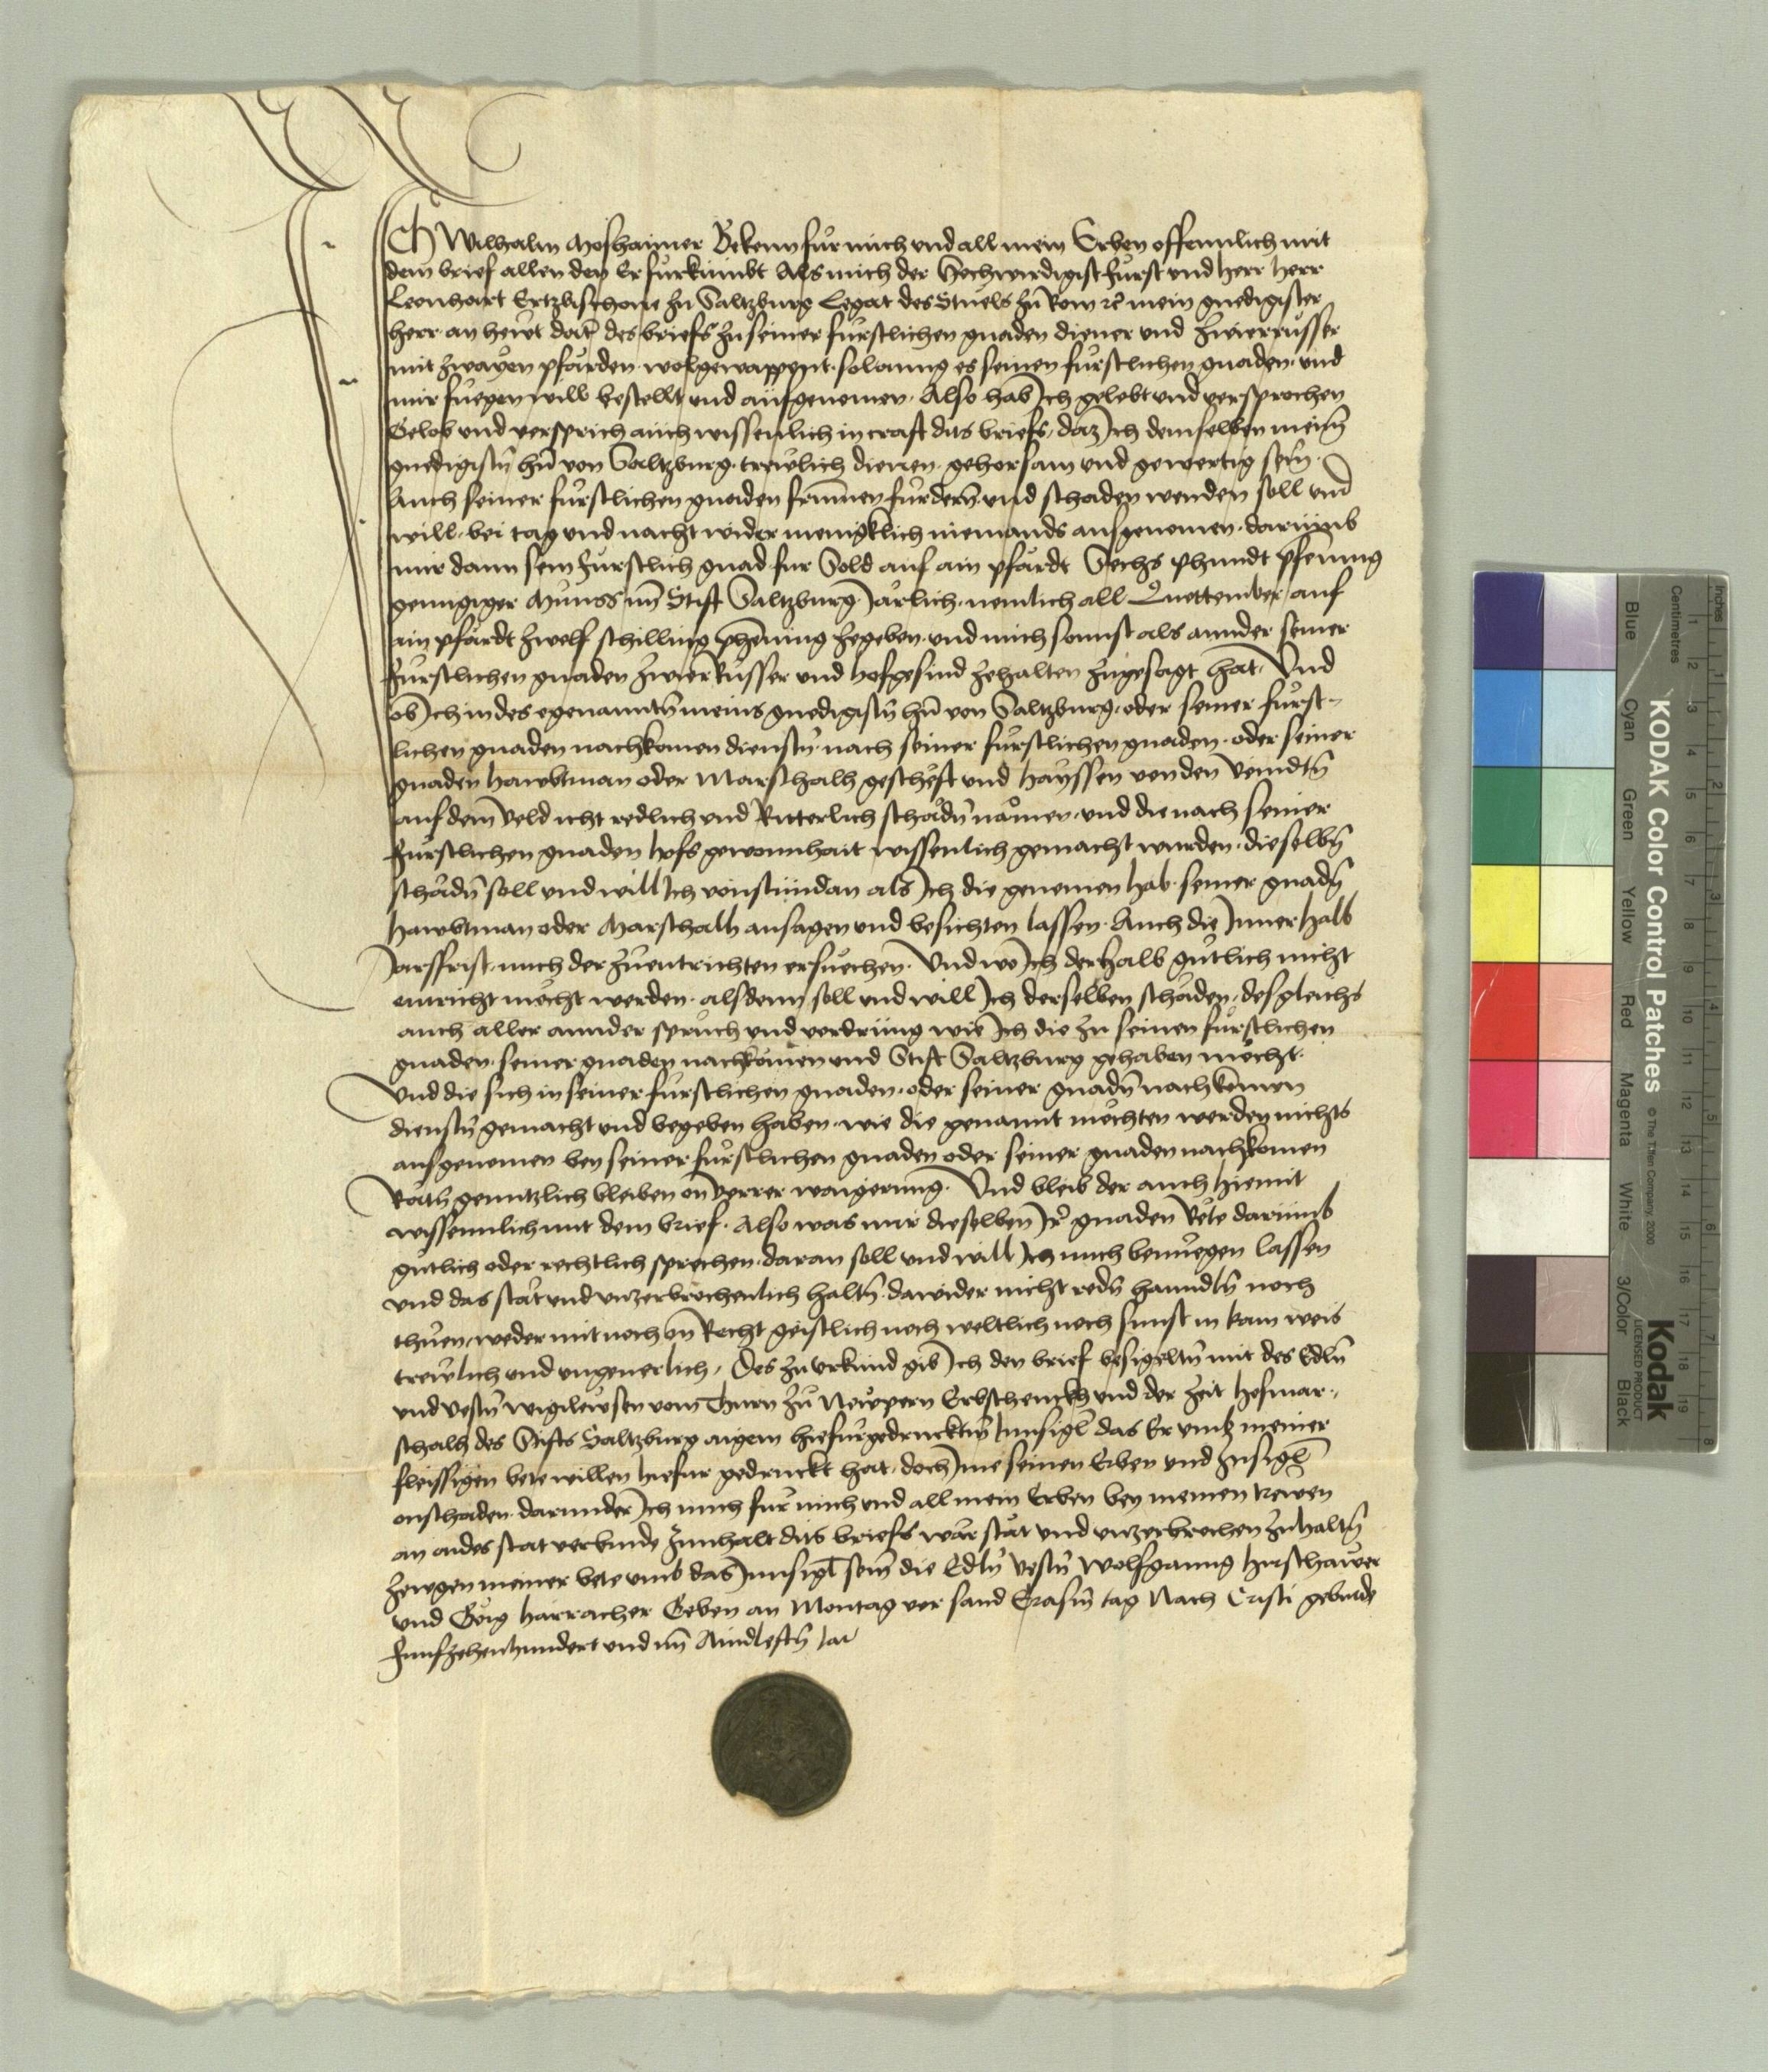 Ich Wilhalm Moshaimer Bekenn für mich und all mein Erben offennlich mit
dem brief allen den Er fürkumbt Als mich der Hochwirdigist Fürst und herr herr
Leonhart Ertzbischove zu Saltzburg Legat des Stuels zu Rom rc mein gnedigister
herr an hewt dato des briefs zu seiner fürstlichen gnaden diener und
mit zwayen pfärden wolgewappent solanng es seinen fürstlichen gnaden und
mir fuegen will bestellt und aufgenomen. Also hab Ich gelobt und versprochen
Gelob und versprich auch wissenlich in craft dits briefs, daz Ich demselben meinem
gnedigistn hern von Saltzburg. trewlich dienen. gehorsam und gewertig sein.
Auch seiner fürstlichen gnaden frummen fürdern und schaden wenden soll und
will. bei tag und nacht wider menigklich niemands ausgenomen. darumb
mir dann sein Fürstlich gnad fur Sold auf ain pfärdt Sechs Phundt pfening
genngiger Münss im Stift Saltzburg Järlich. nemlich all Quottember auf
ain pfärdt zwelf schilling phening zegeben. und mich sonnst als annder seiner
Fürstlichen gnaden und hofgesind zehalten zugesagt hat. Und
ob Ich in des egenanntn meins gnedigistn hern von Saltzburg. oder seiner fürst-
lichen gnaden nachkomen dienstn. nach seiner fürstlichen gnaden. oder seiner
gnaden hawbtman oder Marschalh gescheft und hayssen von den veindtn
auf dem Veld icht redlich und Ritterlich schädn nämen. und die nach seiner
Fürstlichen gnaden hofs gewonnhait wissenlich gemacht wurden. dieselbn
schädn soll und will Ich vonstundan als Ich die genomen hab. seiner gnadn
hawbtman oder Marschalh ansagen und besichten lassen. Auch die Innerhalb
Jarsfrist. mich der zuentrichten ersuechen. Und wo Ich derhalb gütlich nicht
entricht möcht werden. alsdenn soll und will Ich derselben schäden. desgleichs
auch aller annder sprüch und vordrung wie Ich die zu seinen fürstlichen
gnaden. seiner gnaden nachkomen und Stift Saltzburg gehaben möcht.
Und die sich in seiner fürstlichen gnaden. oder seiner gnadn nachkomen
dienstn gemacht und begeben haben. wie die genannt möchten werden nichts
ausgenomen bey seiner fürstlichen gnaden oder seiner gnaden nachkomen
Räth genntzlich bleiben on verrer waigerung. Und bleib der auch hiemit
wissennlich mit dem brief. Also was mir dieselben Ir gnaden Räte darumb
gütlich oder rechtlich sprechen. daran soll und will Ich mich benüegen lassen
und das stät und unzerbrochenlich haltn. dawider nicht redn hanndln noch
thuen. weder mit noch on Recht geistlich noch weltlich noch sunst in kain weis
trewlich und ungeverlich. Des zu urkund gib Ich den brief besigeltn mit des Edln
und vestn Wigilewsen vom Thurn zu Newpern Erbschenckh und der zeit Hofmar-
schalh des Stifts Saltzburg aigem hiefürgedrucktm Innsigl das Er umb meiner
fleissigen bete willen hiefur gedruckt hat. doch Ime seinen Erben und Insigl
onschaden. darunder Ich mich für mich und all mein Erben bey meinen trewen
an aides stat verbinde Innhalt dits briefs wär stät und unzerbrochen zuhaltn
Zewgen meiner bete umb das Innsigl sein die Edln Vestn Wolfganng
und Görig Harracher Geben an Montag vor sand Erasm tag Nach Cristi geburde
Funfzehenhundert und im Aindleftn Jar
Inches
Centimetres
KODAK Color Control Patches
© The Tiffen Company, 2000
Kodak
LICENSED PRODUCT
Blue
Cyan
Green
Yellow
Red
Magenta
White
3/Color
Black